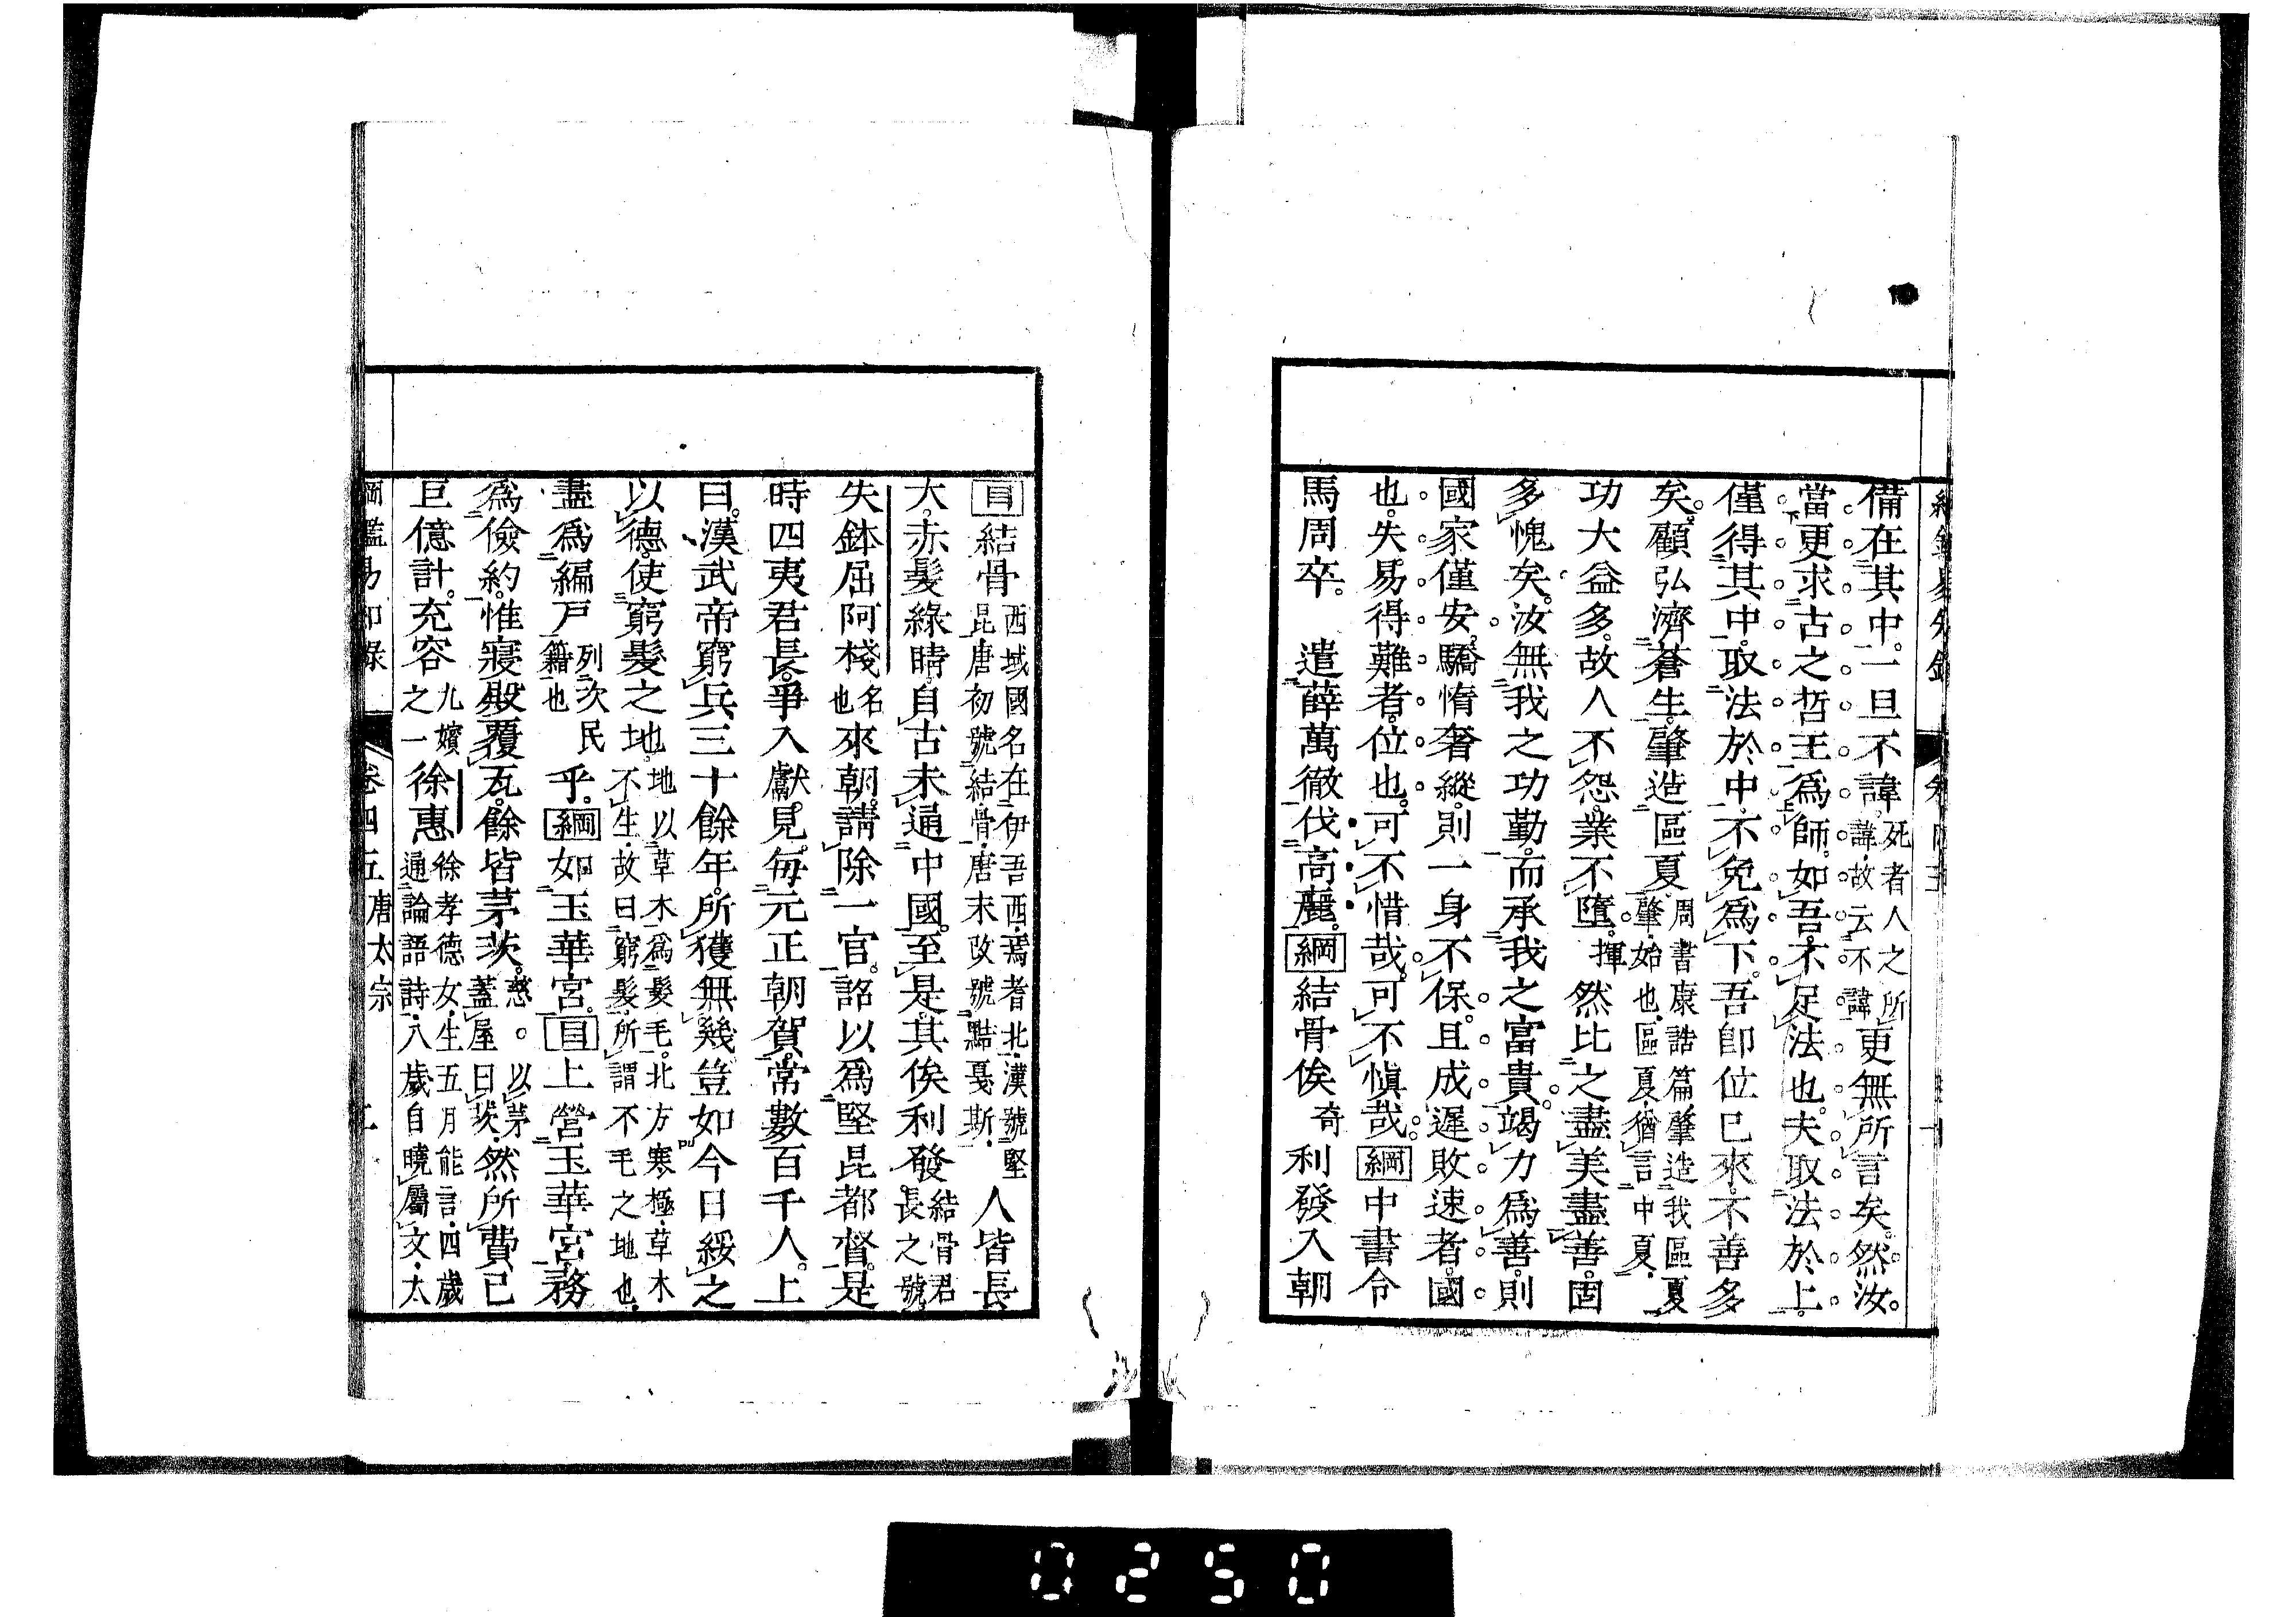 備在其中。一旦不諱。死者人之所諱、故云不諱更無所言矣。然汝
當更求古之哲王爲師。如吾不足法也。夫取法於上。
僅得其中。取法於中、不免爲下。吾卽位已來、不善多
矣。顧弘濟蒼生。肇造區夏。周書康誥篇肇造我區夏肇、始也、區夏、猶言中夏、
功大益多。故人不怨。業不墮。揮然比之盡美盡善。固
多愧矣。汝無我之功勤。而承我之富貴。竭力爲善。則
國家僅安、驕惰奢縱。則一身不保。且成遲敗速者。國
也。失易得難者。位也。可不惜哉。可不愼哉。綱中書令
馬周卒。 遣薛萬徹伐高麗。綱結骨俟奇利發入朝
目結骨西域國名在伊吾西、焉耆北、漢號堅昆、唐初號結骨、唐末改號黠戞斯、人皆長
大。赤髮綠睛。自古未通中國。至是。其俟利發結骨君長之號
失鉢屈阿棧名也來朝。請除一官。詔以爲堅昆都督。是
時四夷君長。爭入獻見。每元正朝賀。常數百千人。上
曰。漢武帝窮兵三十餘年。所獲無幾豈如今日綏之
以德。使窮髮之地也。地以草木爲髮毛。北方寒極、草木不生、故曰窮髮、所謂不毛之地也、
盡爲編戸列次民籍也乎。綱如玉華宮。目上營玉華宮。務
爲儉約。惟寢殿覆瓦。餘皆茅茨。慈。以茅蓋屋曰茨、然所費已
巨億計。充容九嬪之一徐惠徐孝德女、生五月能言、四歲通論語詩、八歲自曉屬文、太
綱鑑易知錄 卷四五 唐太宗